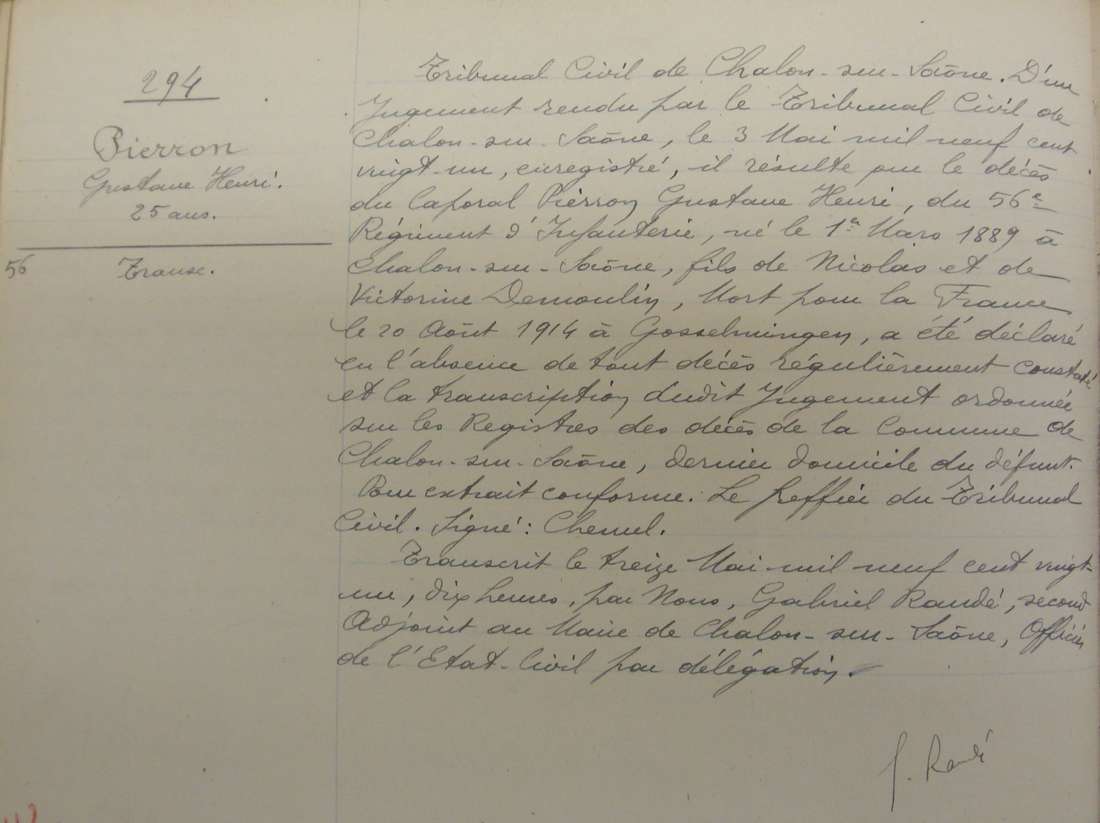 294
Pierron
Gustave Henri.
25 ans.
56 Transc.
Tribunal Civil de Chalon-sur-Saône. D'un
Jugement rendu par le Tribunal Civil de
Chalon-sur-Saône, le 3 Mai mil neuf cent
vingt-un, enregistré, il résulte que le décès
du Caporal Pierron Gustave Henri, du 56e
Régiment d'Infanterie, né le 1er Mars 1889 à
Chalon-sur-Saône, fils de Nicolas et de
Victorine Demoulin, Mort pour la France
le 20 Août 1914 à Gosselmingen, a été déclaré
en l'absence de tout décès régulièrement constaté
et la transcription dudit Jugement ordonnée
sur les Registres des décès de la Commune de
Chalon-sur-Saône, dernier domicile du défunt.
Pour extrait conforme. Le Greffier du Tribunal
Civil. Signé:
Transcrit le treize Mai mil neuf cent vingt-
un, dix heures, par Nous, Gabriel Randé, second
Adjoint au Maire de Chalon-sur-Saône, Officier
de l'Etat-Civil par délégation.
G. Randé